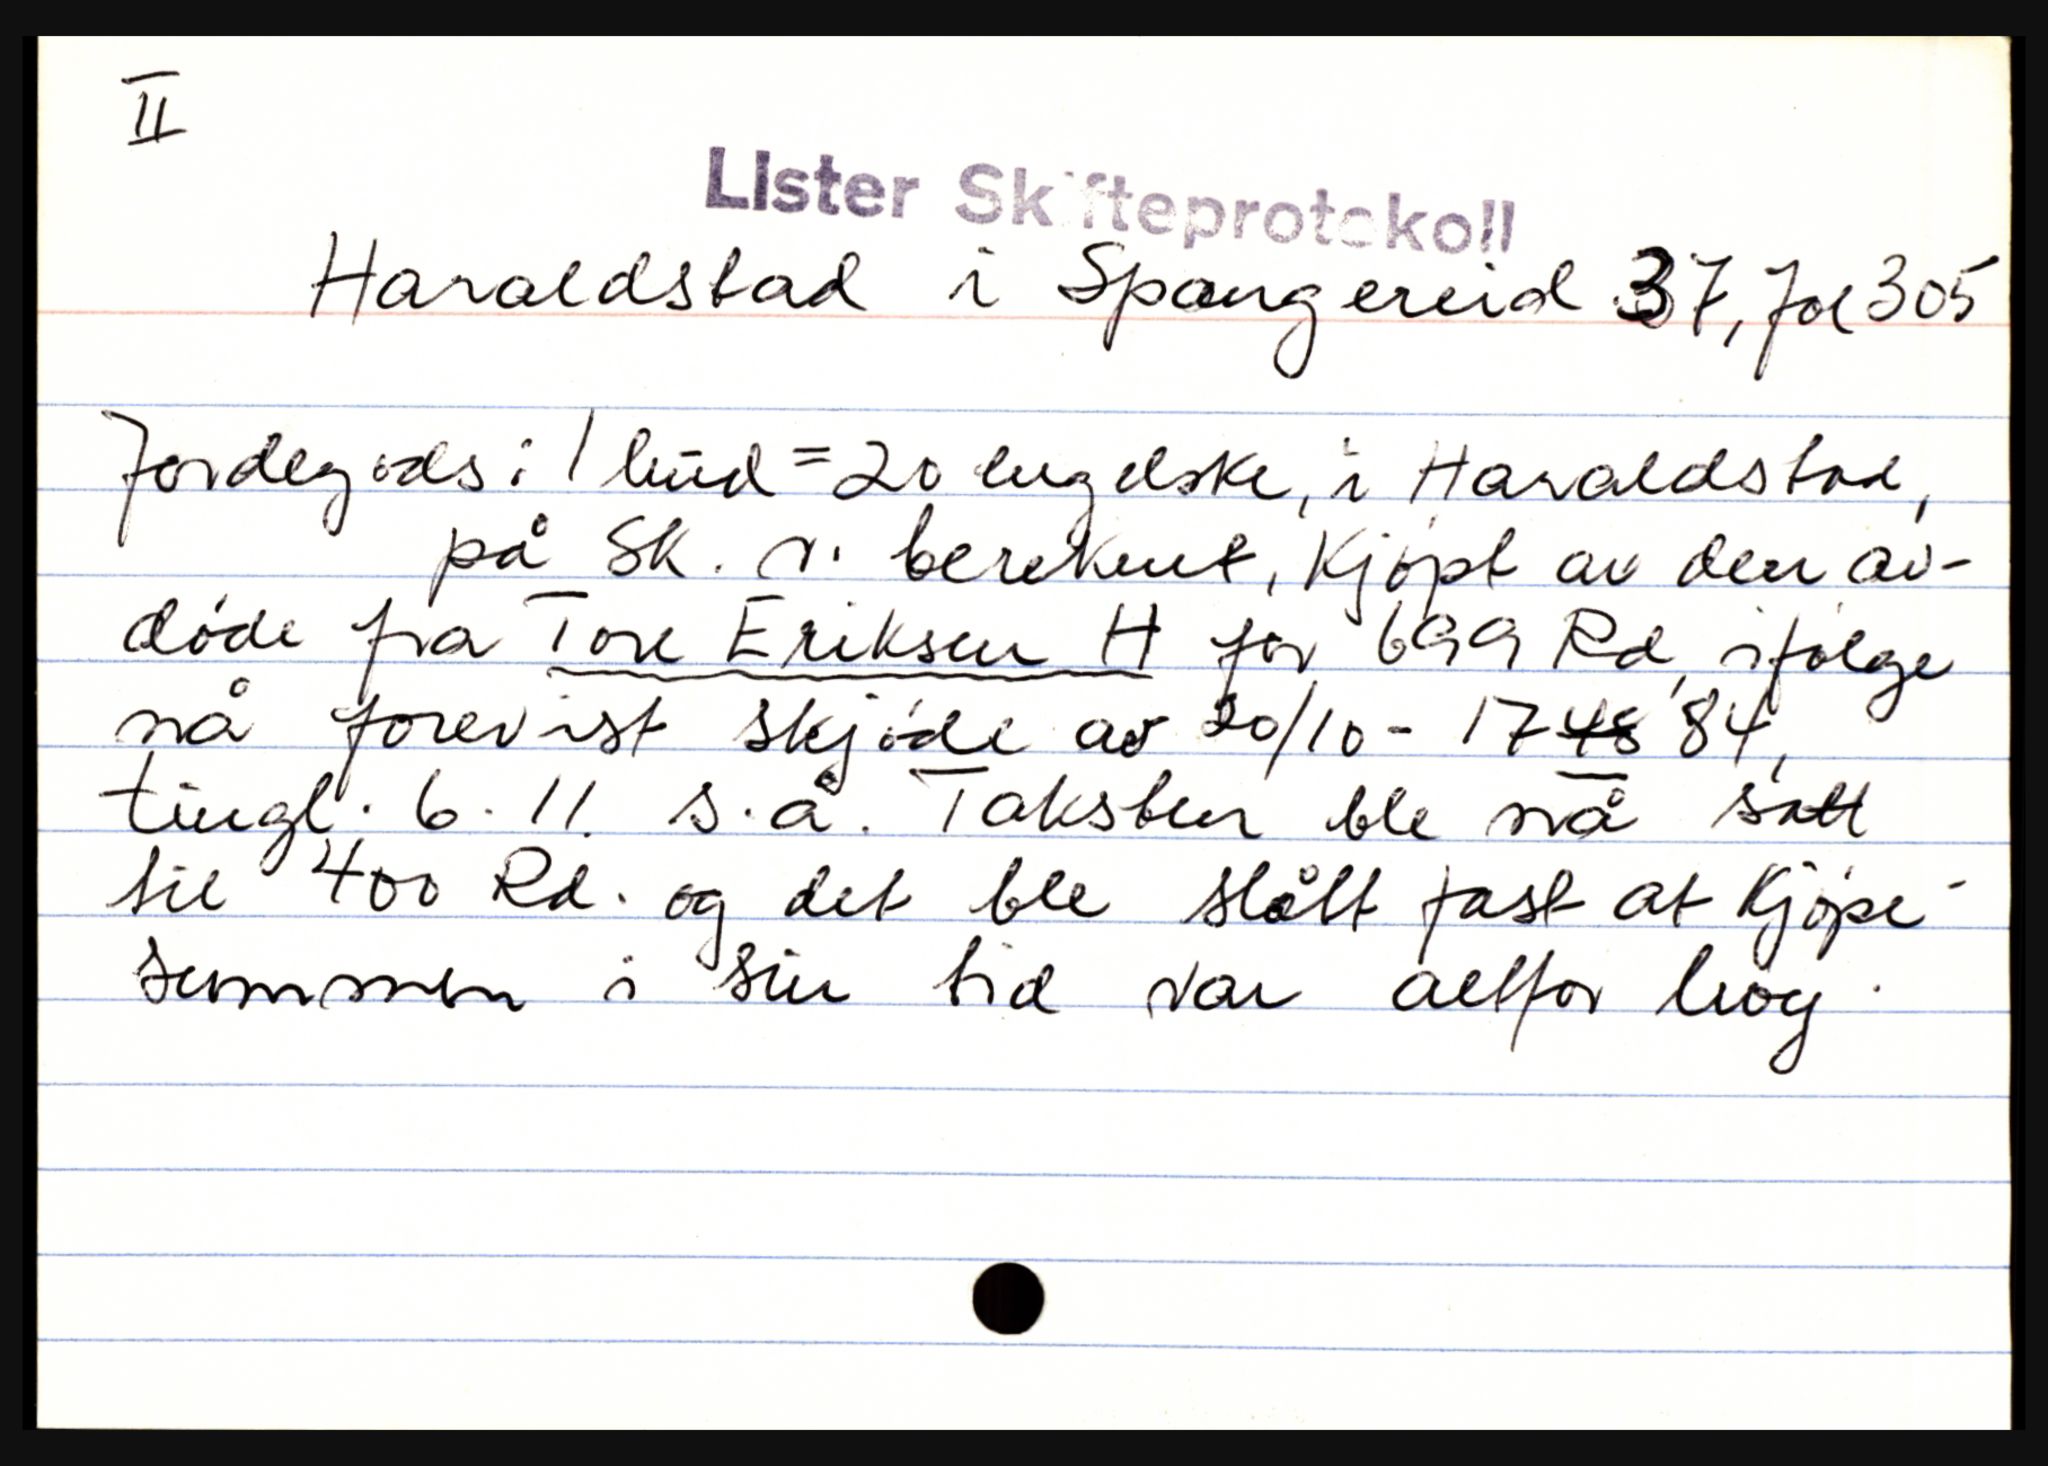 II
Lister Skifteprotokoll
Haraldstad i Spangereid 37, fol 305
Jordegods: 1 hud = 20 engelske, i Haraldstad,
på Sk. r. berekent, Kjøpt av den av-
døde fra Tore Eriksen H for 699 Rd, ifølge
nå forevist skjøde av 20/10 - 1748 84,
tingl. 6. 11. s. å. Taksten ble nå satt
til 400 Rd. og det ble slått fast at Kjøpe-
summen i sin tid var altfor høg.